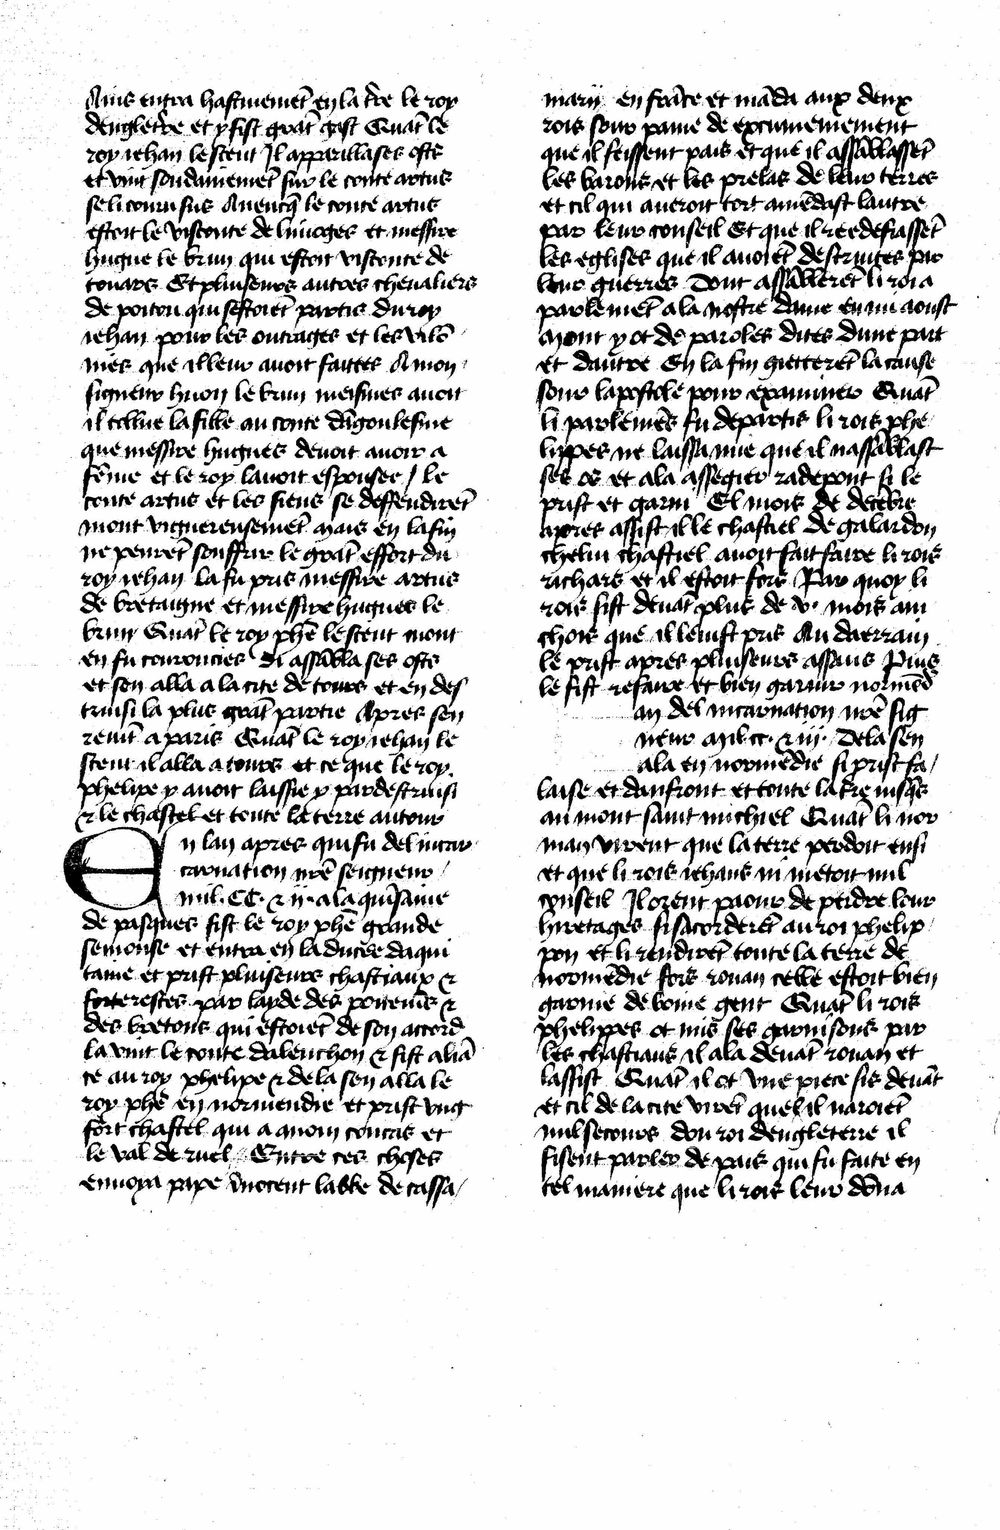 Ains entra hastiuemēt en la tr̄e le roy
dengletr̄e et y fist grāt gast Quāt le
roy iehan le sceut Il apparilla ses osts
et vint soudainemēt sur le conte artus
se li couru sus Auencq̄ le conte artus
estoit le visconte de limoges et messire
hugue le brun qui estoit visconte de
touars Et pluiseurs autres cheualiers
de poitou qui sestoiēt partis du roy
iehan pour les outrages et les vilō
nies que il leur auoit faittes A mon
signeur huon le brun meismes auoit
il tollue la fille au conte dāgoulesme
que messire hugues deuoit auoir a
fēme et le roy lauoit espousee / Le
conte artus et les siens se deffendirēt
mont viguereusemēt mais en la fin
ne peurēt souffrir le grāt effort du
roy iehan la fu pris messire artus
de bretaigne et messire hugues le
brun Quāt le roy phē le sceut mont
en fu courouciés Si assābla ses osts
et sen alla a la cite de tours et en des
truisi la plus grāt partie Apres sen
reuīt a paris Quāt le roy iehan le
sceut il alla a tours et ce que le roy
phelipe y auoit laissie y pardestruisi
& le chastel et toute la terre autour
En lan apres qui fu del incar
carnation nr̄e seigneur
mil. CC. & ii. a la quīsaine
de pasques fist le roy phē grande
semonse et entra en la ducee daqui
taine et prist pluiseurs chastiaux &
forterestes par layde des poiteuīs &
des bretons qui estoiēt de son accord
la vint le conte dalenchon & fist aliā
ce au roy phelipe & de la sen alla le
roy phē en normendie et prist vng
fort chastel qui a a nom concas et
le val de ruel Entre ces choses
enuoya pape īnocent labbe de cassa /
marij en frāce et māda aux deux
rois sour paine de excumeniement
que il feissent pais et que il assāblassēt
les barons et les prelas de leur terres
et cil qui aueroit tort amēdast lautre
par leur conseil Et que il reedefiassēt
les eglises que il auoiēt destruites par
leur guerres Dont assāblerēt li roi a
parlemēt a la nostre dame en mi aoust
Mont y ot de paroles dites dune part
et dautre En la fin gietterēt la cause
sour lapostole pour examiner Quāt
li parlemēs fu departis li rois phe
lippes ne laissa mie que il nassāblast
ses os et ala assegier radepont si le
prist et garni El mois de decēbre
apres assist il le chastiel de galardon
chelui chastiel auoit fait faire li rois
richars et il estoit fors Par quoy li
rois sist deuāt plus de v. mois ain
chois que il leuist pris Au daerrain
le prist apres pluiseurs assaus Puis
le fist refaire et bien garnir normēd
an del incarnation nr̄e sig
neur mil. cc. & iii. Dela sen
ala en normēdie si prist fa /
laise et danfront et toute la tr̄e iusq̄s
au mont saint michiel Quāt li nor
man virent que la terre perdoit ensi
et que li rois iehans ni metoit nul
conseil Il orent paour de perdre leur
hiretages si sacorderēt au roi phelip
pon et li rendirēt toute la terre de
normēdie fors rouan celle estoit bien
garnie de boine gent Quāt li rois
phelipes ot mis ses garnisons par
les chastiaus il ala deuāt rouan et
lassist Quāt il ot vne piece sis deuāt
et cil de la cite virēt que il naroiēt
nul secours dou roi dengleterre il
fisent parler de pais qui fu faite en
tel maniere que li rois leur dōna